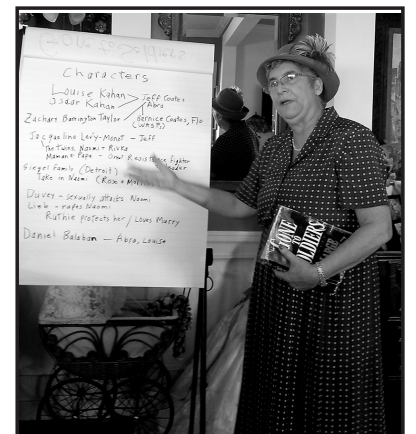 Gone to Soldiers
Characters
Louise Kahan Jeff Coates
Oscar Kahan Abra
Zachary Barrington Taylor Bernice Coates, Flo
(WASPs)
Jacqueline Levy-Monot - Jeff
The twins Naomi - Rivka
Maman + Papa - Great Resistance fighter
leader
Siegel Family (Detroit)
Take in Naomi (Rose + Morris)
Duvey - sexually attacks Naomi
Leib - rapes Naomi
Ruthie protects her / Loves Murry
Daniel Balaban - Abra, Louise
GONE
TO
SOLDIERS